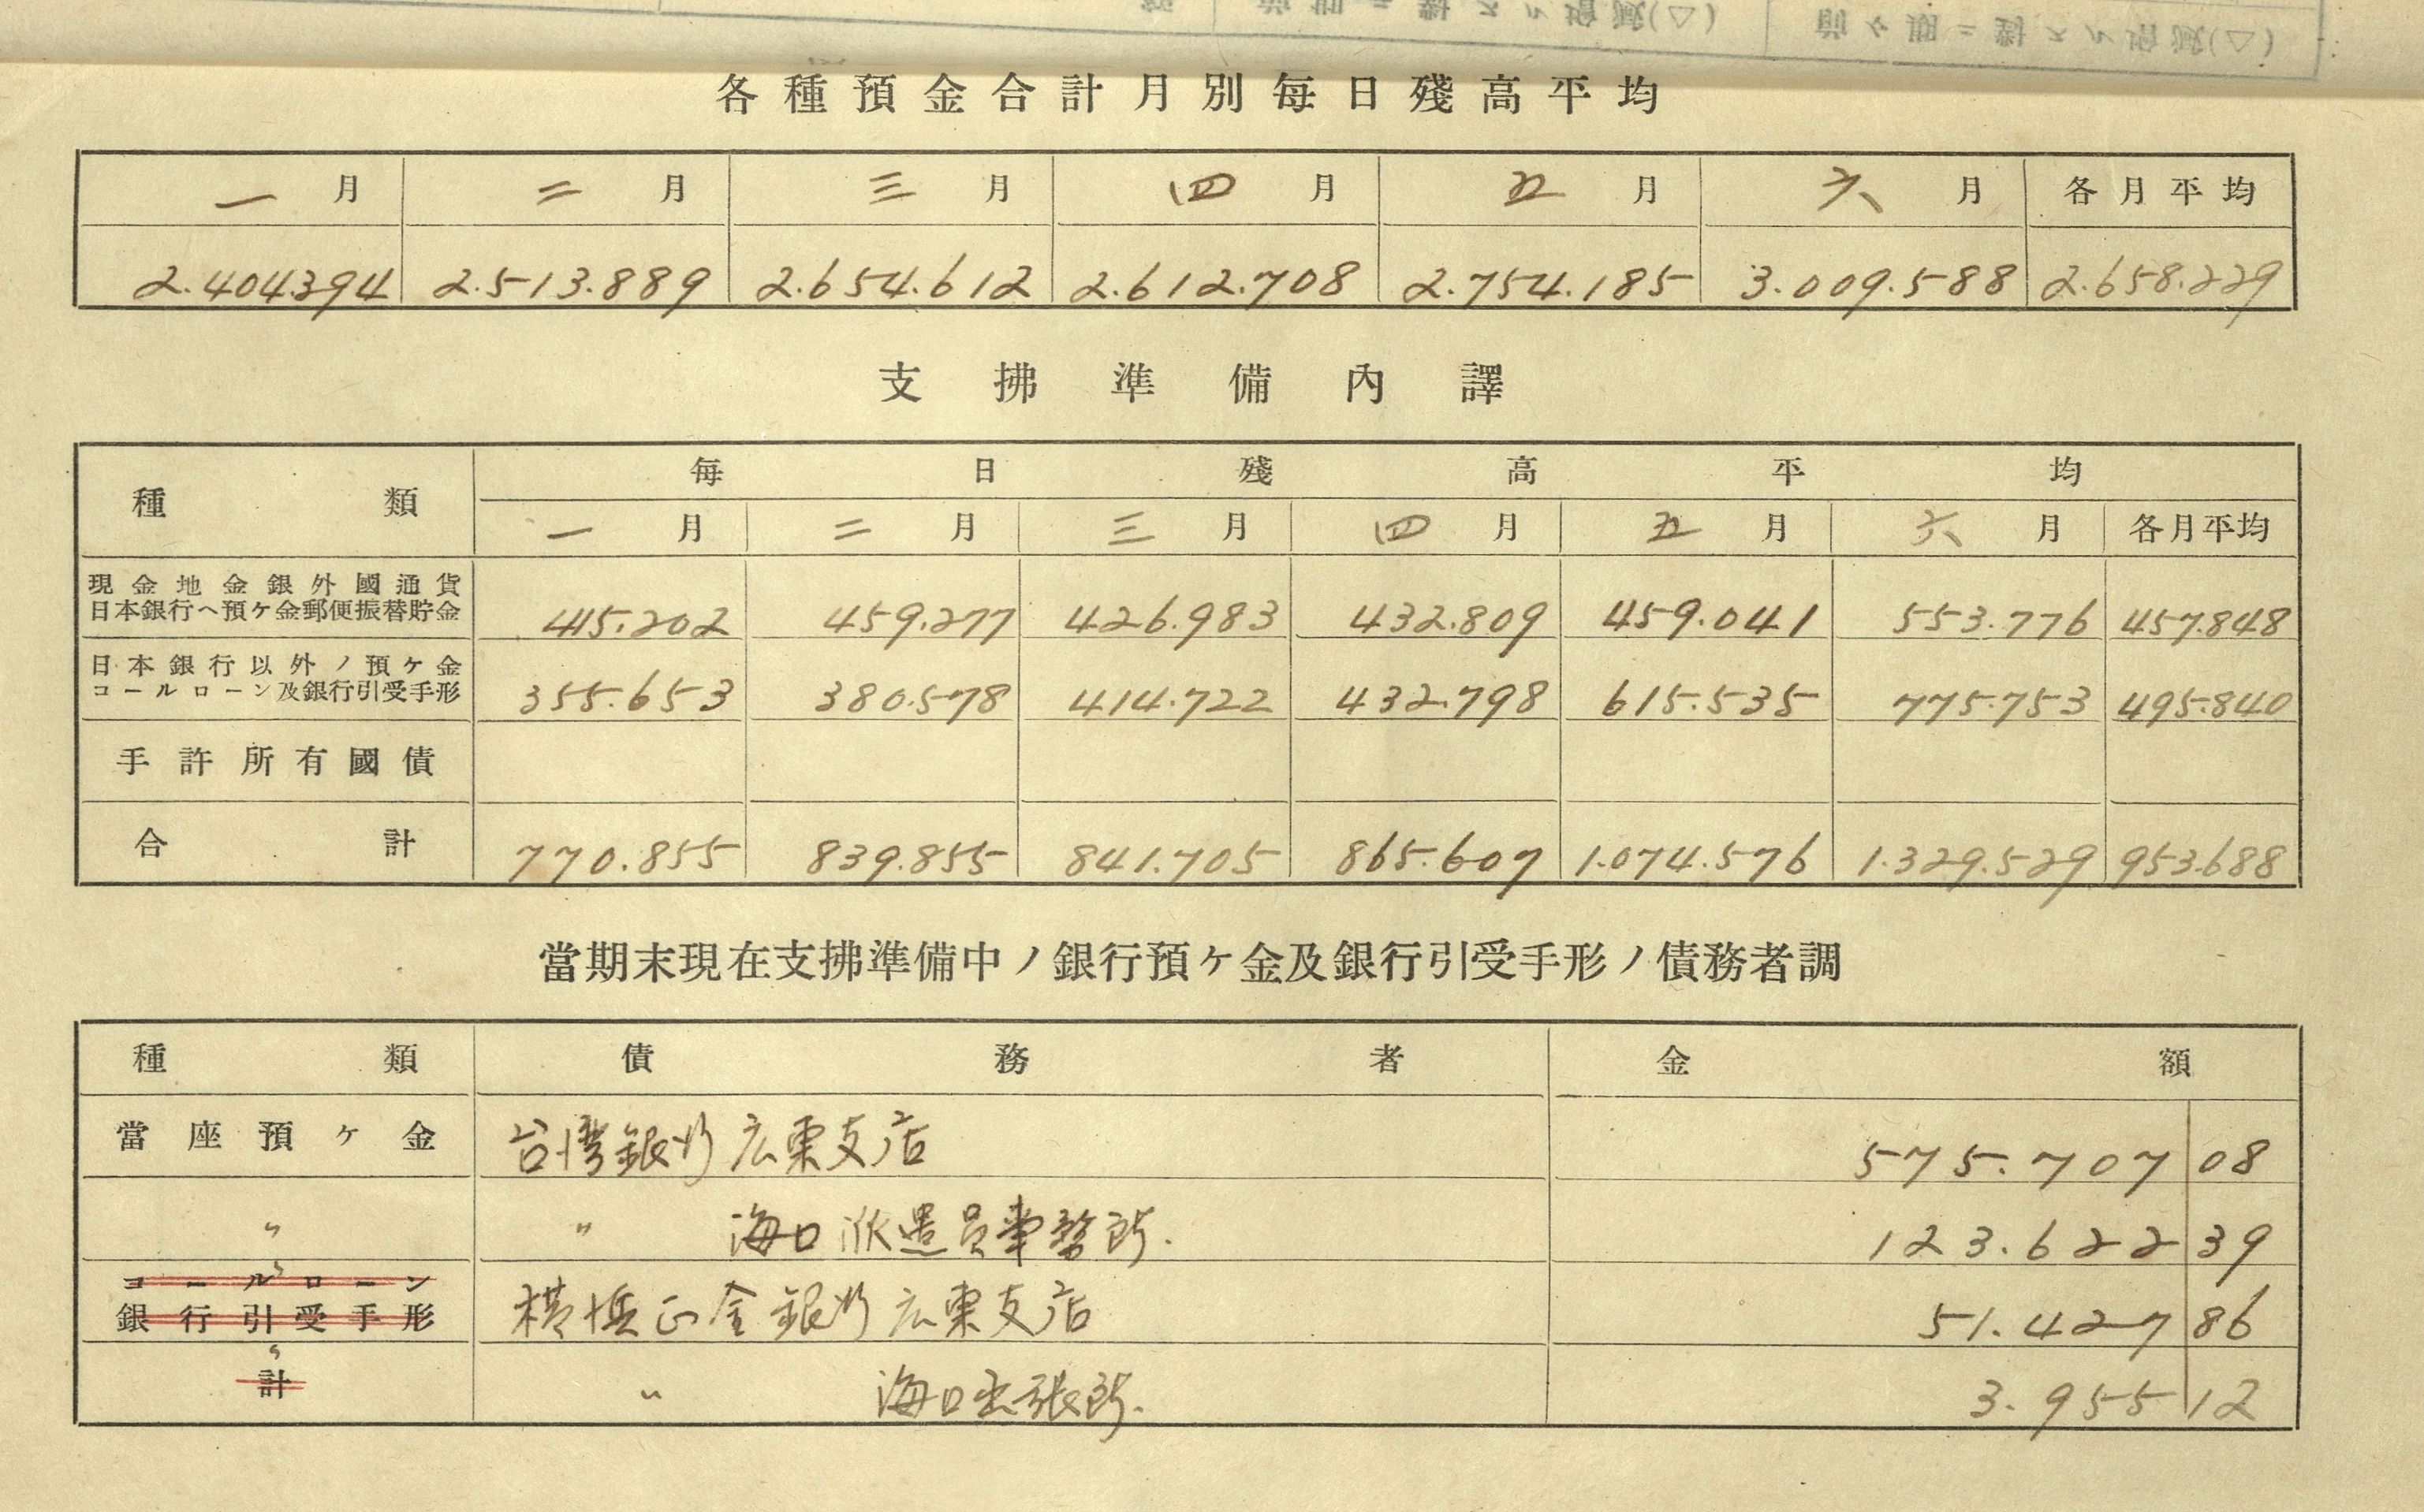 各種預金合計月別每日殘高平均
一月 二月 三月 四月 五月 六月 各月平均
2.404.394 2.513.889 2.654.612 2.612.708 2.754.185 3.009.588 2.658.229
支拂準備內譯
種類 每日殘高平均
一月 二月 三月 四月 五月 六月 各月平均
現金地金銀外國通貨
日本銀行ヘ預ケ金郵便振替貯金 415.202 459.277 426.983 432.809 459.041 553.776 457.848
日本銀行以外ノ預ケ金
コールローン及銀行引受手形 355.653 380.578 414.722 432.798 615.535 775.753 495.840
手許所有國債
合計 770.855 839.855 841.705 865.607 1.074.576 1.329.529 953.688
當期末現在支拂準備中ノ銀行預ケ金及銀行引受手形ノ債務者調
種類 債務者 金額
當座預ケ金 台湾銀行広東支店 575.707 08
〃 〃 海口派遣員事務所. 123.622 39
コールローン
銀行引受手形 横浜正金銀行広東支店 51.427 86
〃
計 〃 海口出張所. 3.955 12